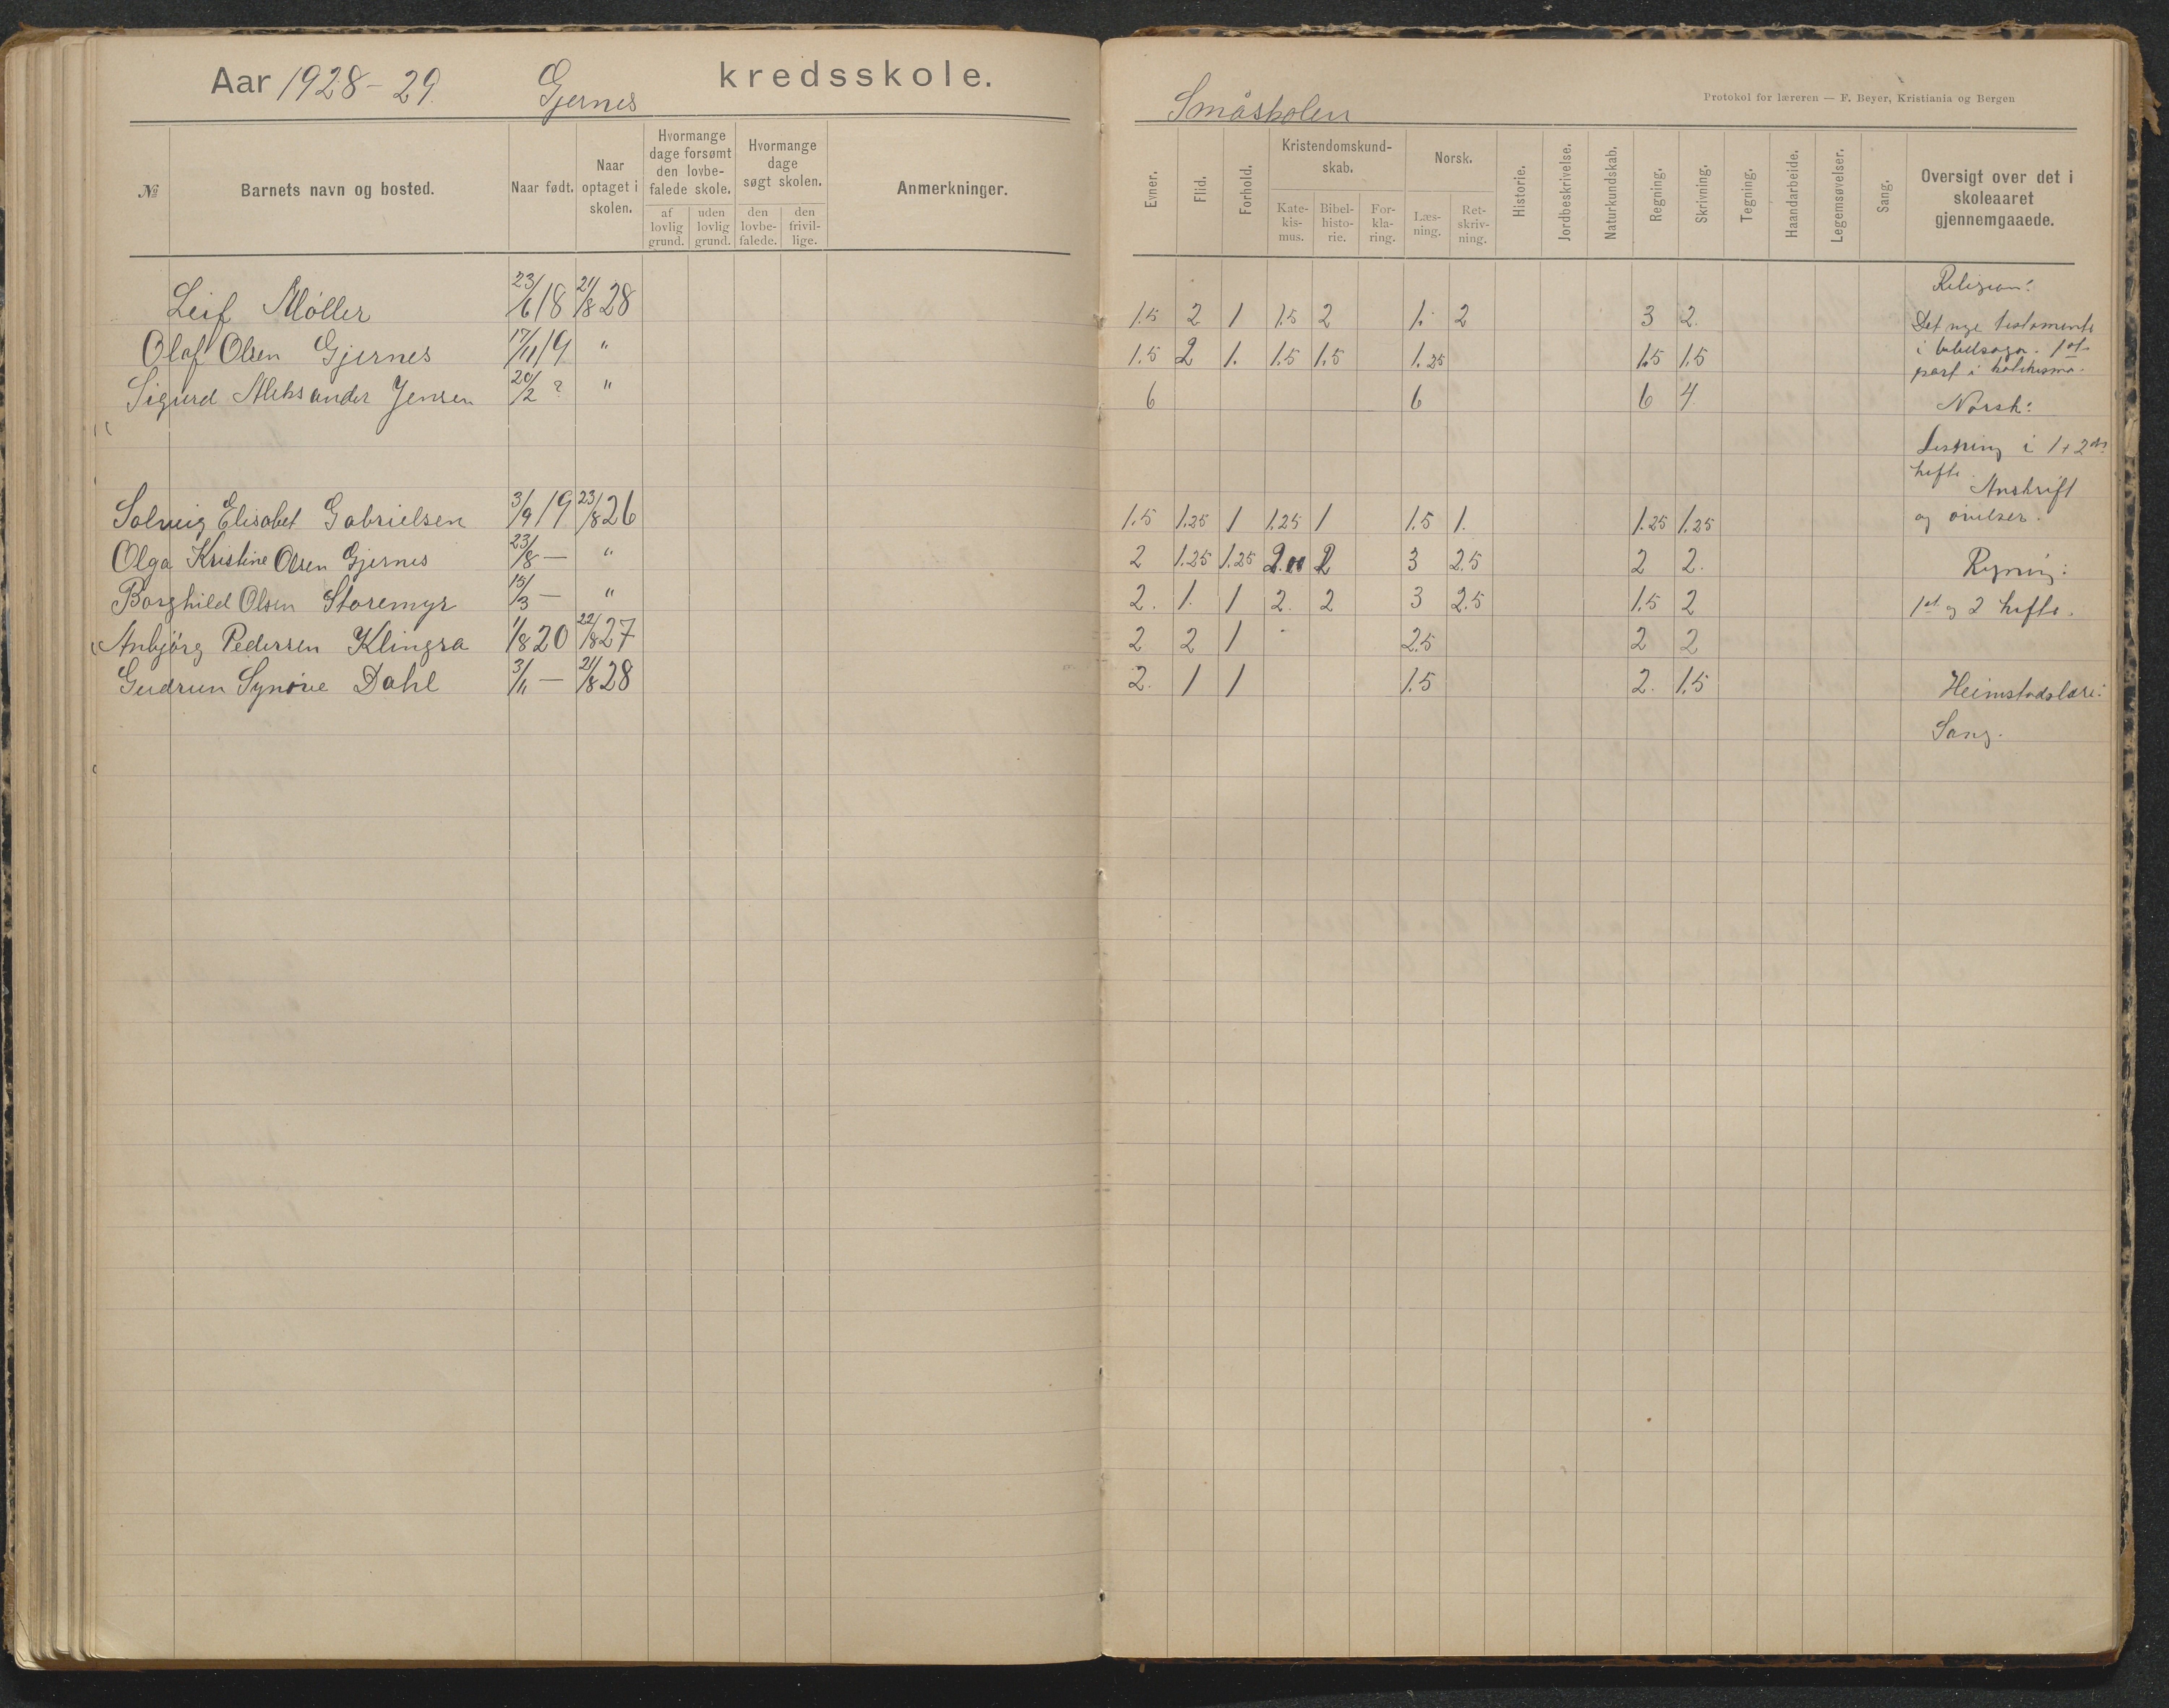 Aar 1928-29. Gjernes kredsskole.
№
Barnets navn og bosted.
Naar født.
Naar optaget i skolen.
Hvormange dage forsømt den lovbefalede skole.
af lovlig grund.
uden lovlig grund.
Hvormange dage søgt skolen.
den lovbefalede.
den frivillige.
Anmerkninger.
Leif Møller 23/6 18 21/8 28
Olaf Olsen Gjernes 17/11 19 "
Sigurd Aleksander Jensen 20/2 ? "
Solveig Elisabet Gabrielsen 3/9 19 23/8 26
Olga Kristine Olsen Gjernes 23/8 — "
Borghild Olsen Storemyr 15/3 — "
Anbjørg Pedersen Klingra 1/8 20 22/8 27
Gudrun Synøve Dahl 3/11 — 21/8 28
Småskolen
Protokol for læreren — F. Beyer, Kristiania og Bergen
Evner.
Flid.
Forhold.
Kristendomskundskab.
Katekismus.
Bibelhistorie.
Forklaring.
Norsk.
Læsning.
Retskrivning.
Historie.
Jordbeskrivelse.
Naturkundskab.
Regning.
Skrivning.
Tegning.
Haandarbeide.
Legemsøvelser.
Sang.
Oversigt over det i skoleaaret gjennemgaaede.
1.5 2 1 1.5 2 1. 2 3 2.
1.5 2 1. 1.5 1.5 1.25 1.5 1.5
6 6 6 4
1.5 1.25 1 1.25 1 1.5 1. 1.25 1.25
2 1.25 1.25 2 2 3 2.5 2 2.
2. 1. 1 2. 2 3 2.5 1.5 2
2 2 1 2.5 2 2
2. 1 1 1.5 2. 1.5
Religion:
Det nye testamente
i bibelsoga. 1st
part i katekisma.
Norsk:
Lesning i 1+2dre
hefte.
Avskrift
og øvelser.
Regning:
1st og 2 hefte.
Heimstadlære:
Sang.